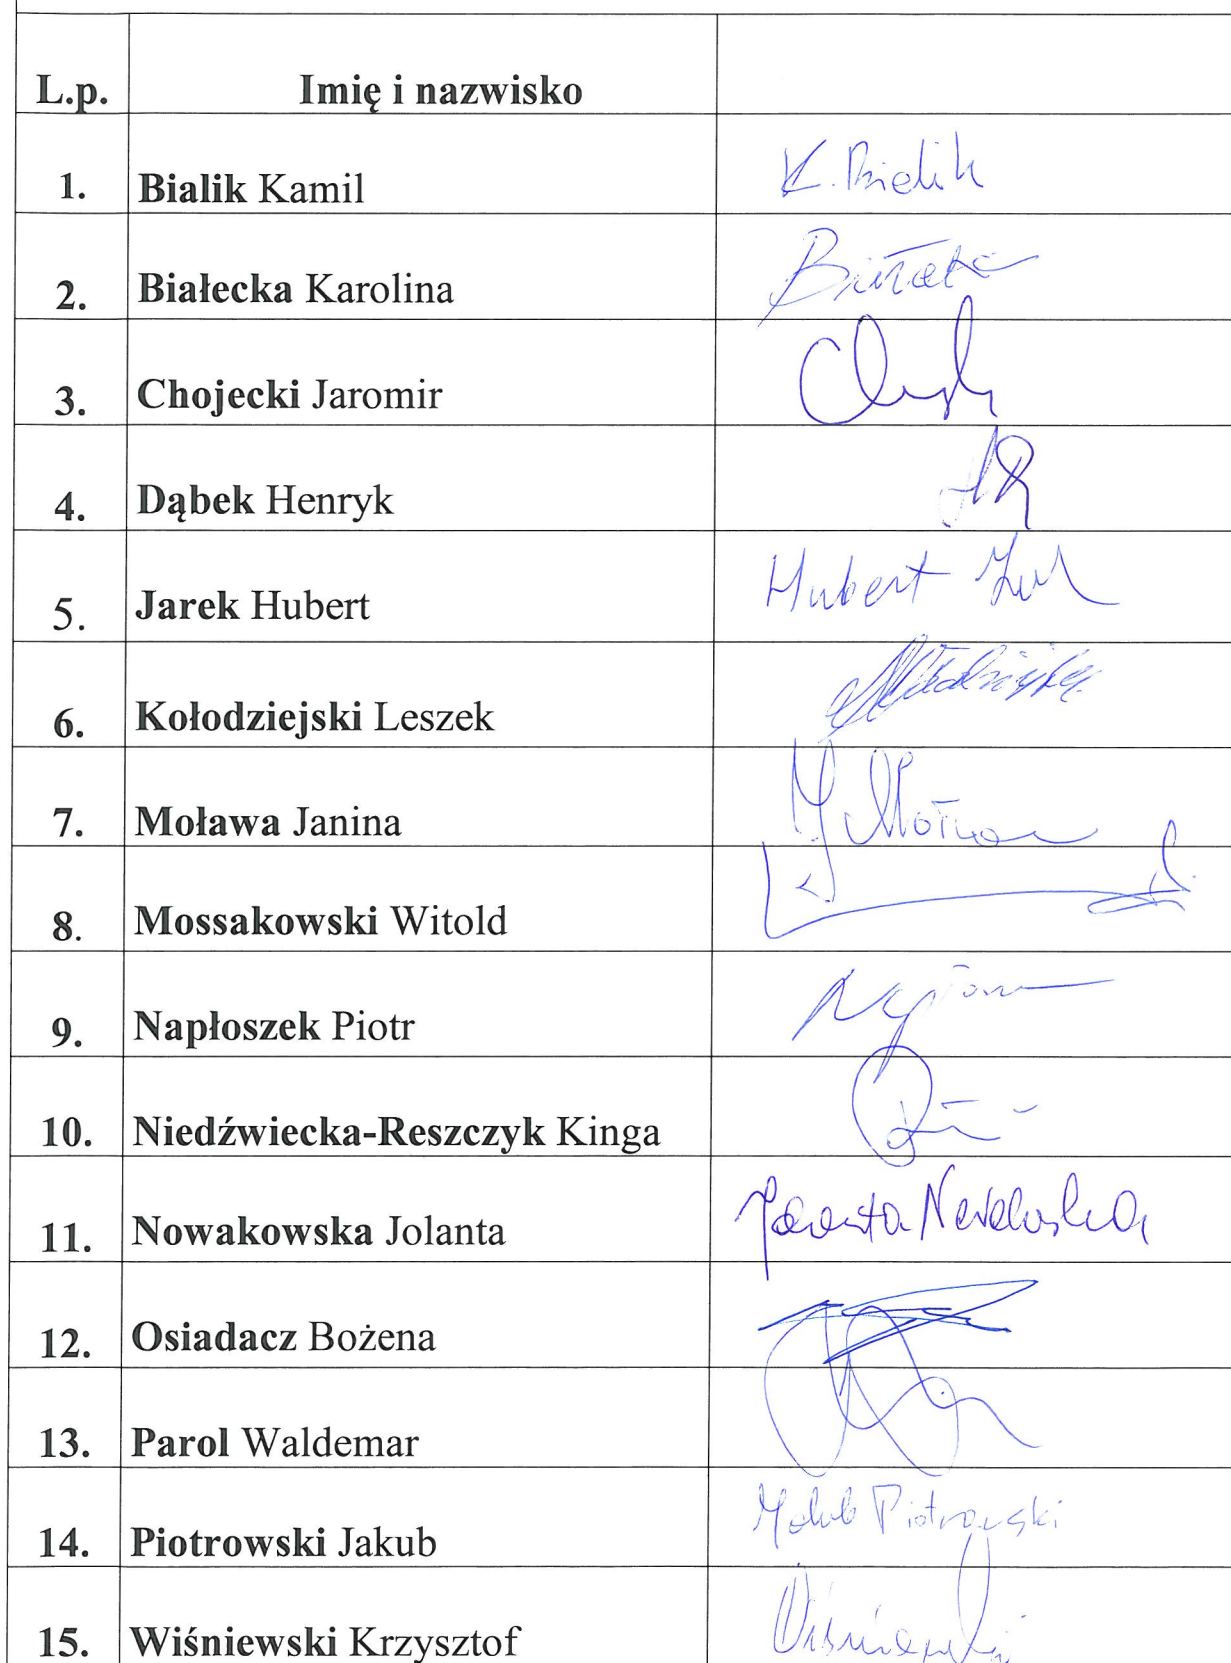 L.p. Imię i nazwisko
1. Bialik Kamil K. Bialik
2. Białecka Karolina
3. Chojecki Jaromir
4. Dąbek Henryk
5. Jarek Hubert Hubert
6. Kołodziejski Leszek
7. Moława Janina
8. Mossakowski Witold
9. Napłoszek Piotr
10. Niedźwiecka-Reszczyk Kinga
11. Nowakowska Jolanta Jolanta Nowakowska
12. Osiadacz Bożena
13. Parol Waldemar
14. Piotrowski Jakub Jakub Piotrowski
15. Wiśniewski Krzysztof Wiśniewski